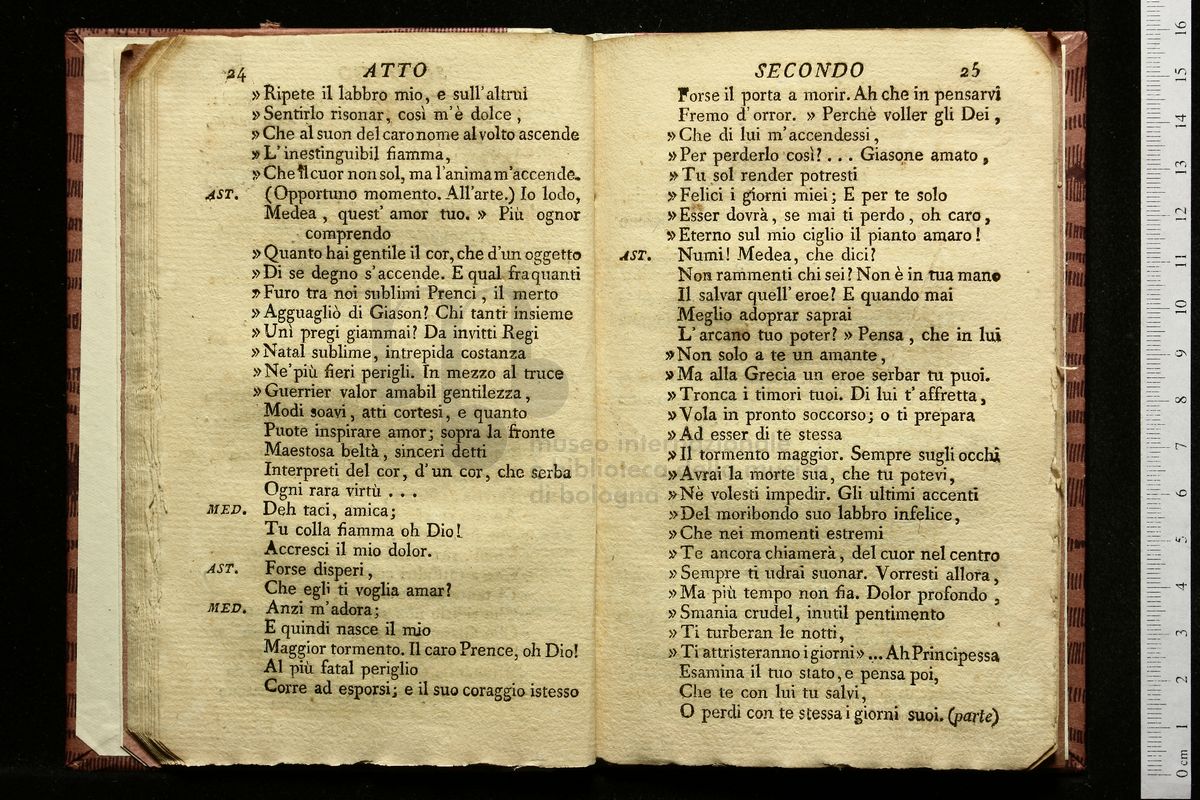 24 ATTO
» Ripete il labbro mio, e sull'altrui
» Sentirlo risonar, così m'è dolce,
» Che al suon del caro nome al volto ascende
» L'inestinguibil fiamma,
» Che il cuor non sol, ma l'anima m'accende.
AST. (Opportuno momento. All'arte.) Io lodo,
Medea, quest' amor tuo. » Più ognor
comprendo
» Quanto hai gentile il cor, che d'un oggetto
» Di se degno s'accende. E qual fra quanti
» Furo tra noi sublimi Prenci, il merto
» Agguagliò di Giason? Chi tanti insieme
» Unì pregi giammai? Da invitti Regi
» Natal sublime, intrepida costanza
» Ne' più fieri perigli. In mezzo al truce
» Guerrier valor amabil gentilezza,
Modi soavi, atti cortesi, e quanto
Puote inspirare amor; sopra la fronte
Maestosa beltà, sinceri detti
Interpreti del cor, d'un cor, che serba
Ogni rara virtù . . .
MED. Deh taci, amica;
Tu colla fiamma oh Dio!
Accresci il mio dolor.
AST. Forse disperi,
Che egli ti voglia amar?
MED. Anzi m'adora;
E quindi nasce il mio
Maggior tormento. Il caro Prence, oh Dio!
Al più fatal periglio
Corre ad esporsi; e il suo coraggio istesso
SECONDO 25
Forse il porta a morir. Ah che in pensarvi
Fremo d'orror. » Perchè voller gli Dei,
» Che di lui m'accendessi,
» Per perderlo così? . . . Giasone amato,
» Tu sol render potresti
» Felici i giorni miei; E per te solo
» Esser dovrà, se mai ti perdo, oh caro,
» Eterno sul mio ciglio il pianto amaro!
AST. Numi! Medea, che dici?
Non rammenti chi sei? Non è in tua mano
Il salvar quell' eroe? E quando mai
Meglio adoprar saprai
L'arcano tuo poter? » Pensa, che in lui
» Non solo a te un amante,
» Ma alla Grecia un eroe serbar tu puoi.
» Tronca i timori tuoi. Di lui t'affretta,
» Vola in pronto soccorso; o ti prepara
» Ad esser di te stessa
» Il tormento maggior. Sempre sugli occhi
» Avrai la morte sua, che tu potevi,
» Nè volesti impedir. Gli ultimi accenti
» Del moribondo suo labbro infelice,
» Che nei momenti estremi
» Te ancora chiamerà, del cuor nel centro
» Sempre ti udrai suonar. Vorresti allora,
» Ma più tempo non fia. Dolor profondo,
» Smania crudel, inutil pentimento
» Ti turberan le notti,
» Ti attristeranno i giorni » ... Ah Principessa
Esamina il tuo stato, e pensa poi,
Che te con lui tu salvi,
O perdi con te stessa i giorni suoi. (parte)
museo internazionale
biblioteca della musica
di bologna
0 cm 1 2 3 4 5 6 7 8 9 10 11 12 13 14 15 16